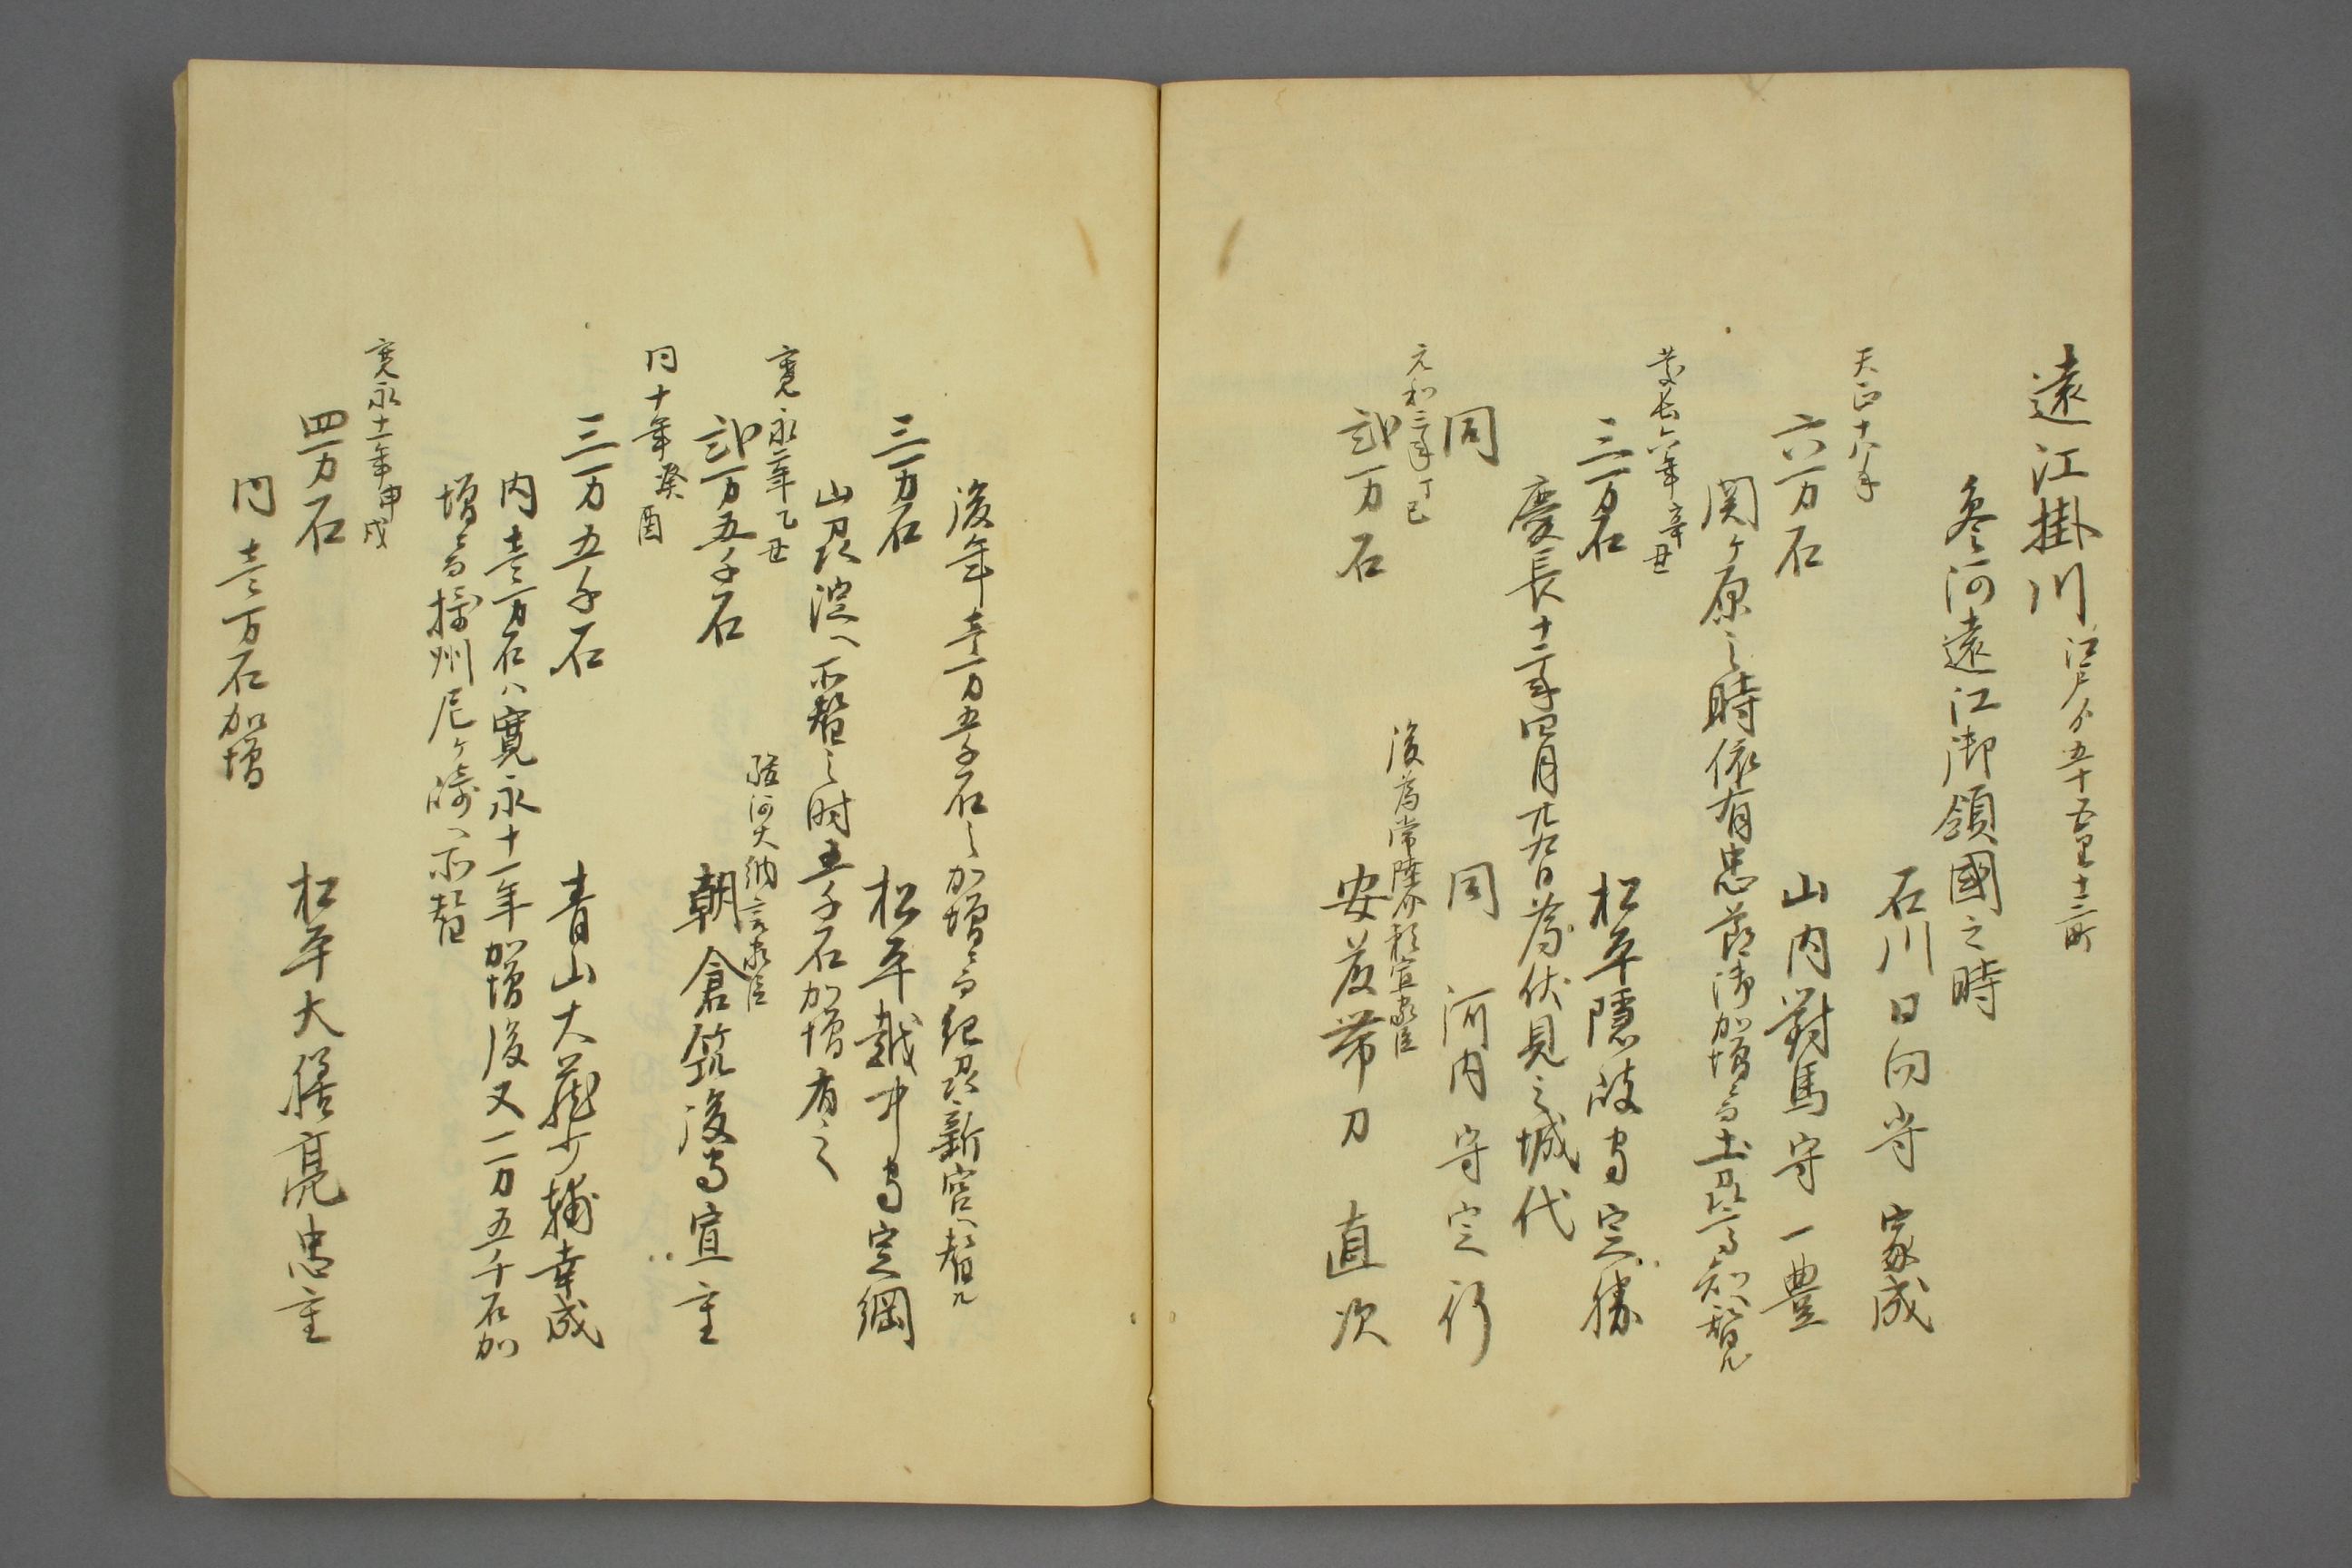 遠江掛川 江戸ゟ五十五里十二町
参河遠江御領國之時
石川日向守 家成
天正十八年
六万石 山内對馬守一豊
関ヶ原之時依有忠節御加増而土州高知替ル
慶長六年辛丑
三万石 松平隠岐守定勝
慶長十二年四月廿九日為伏見之城代
同 同 河内守定行
元和三年丁巳 後為常陸介頼宣家臣
弐万石 安藤帯刀 直次
後年壱万五千石之加増而紀州新宮へ替ル
三万石 松平越中守定綱
山州淀へ所替之時五千石加増有之
寛永二年乙丑 駿河大納言家臣
弐万五千石 朝倉筑後守宣主
同十年癸酉
三万五千石 青山大蔵少輔幸成
内壱万石ハ寛永十一年加増後又一万五千石加
増而摂州尼ヶ崎へ所替
寛永十二年甲戌
四万石 松平大膳亮忠重
内壱万石加増